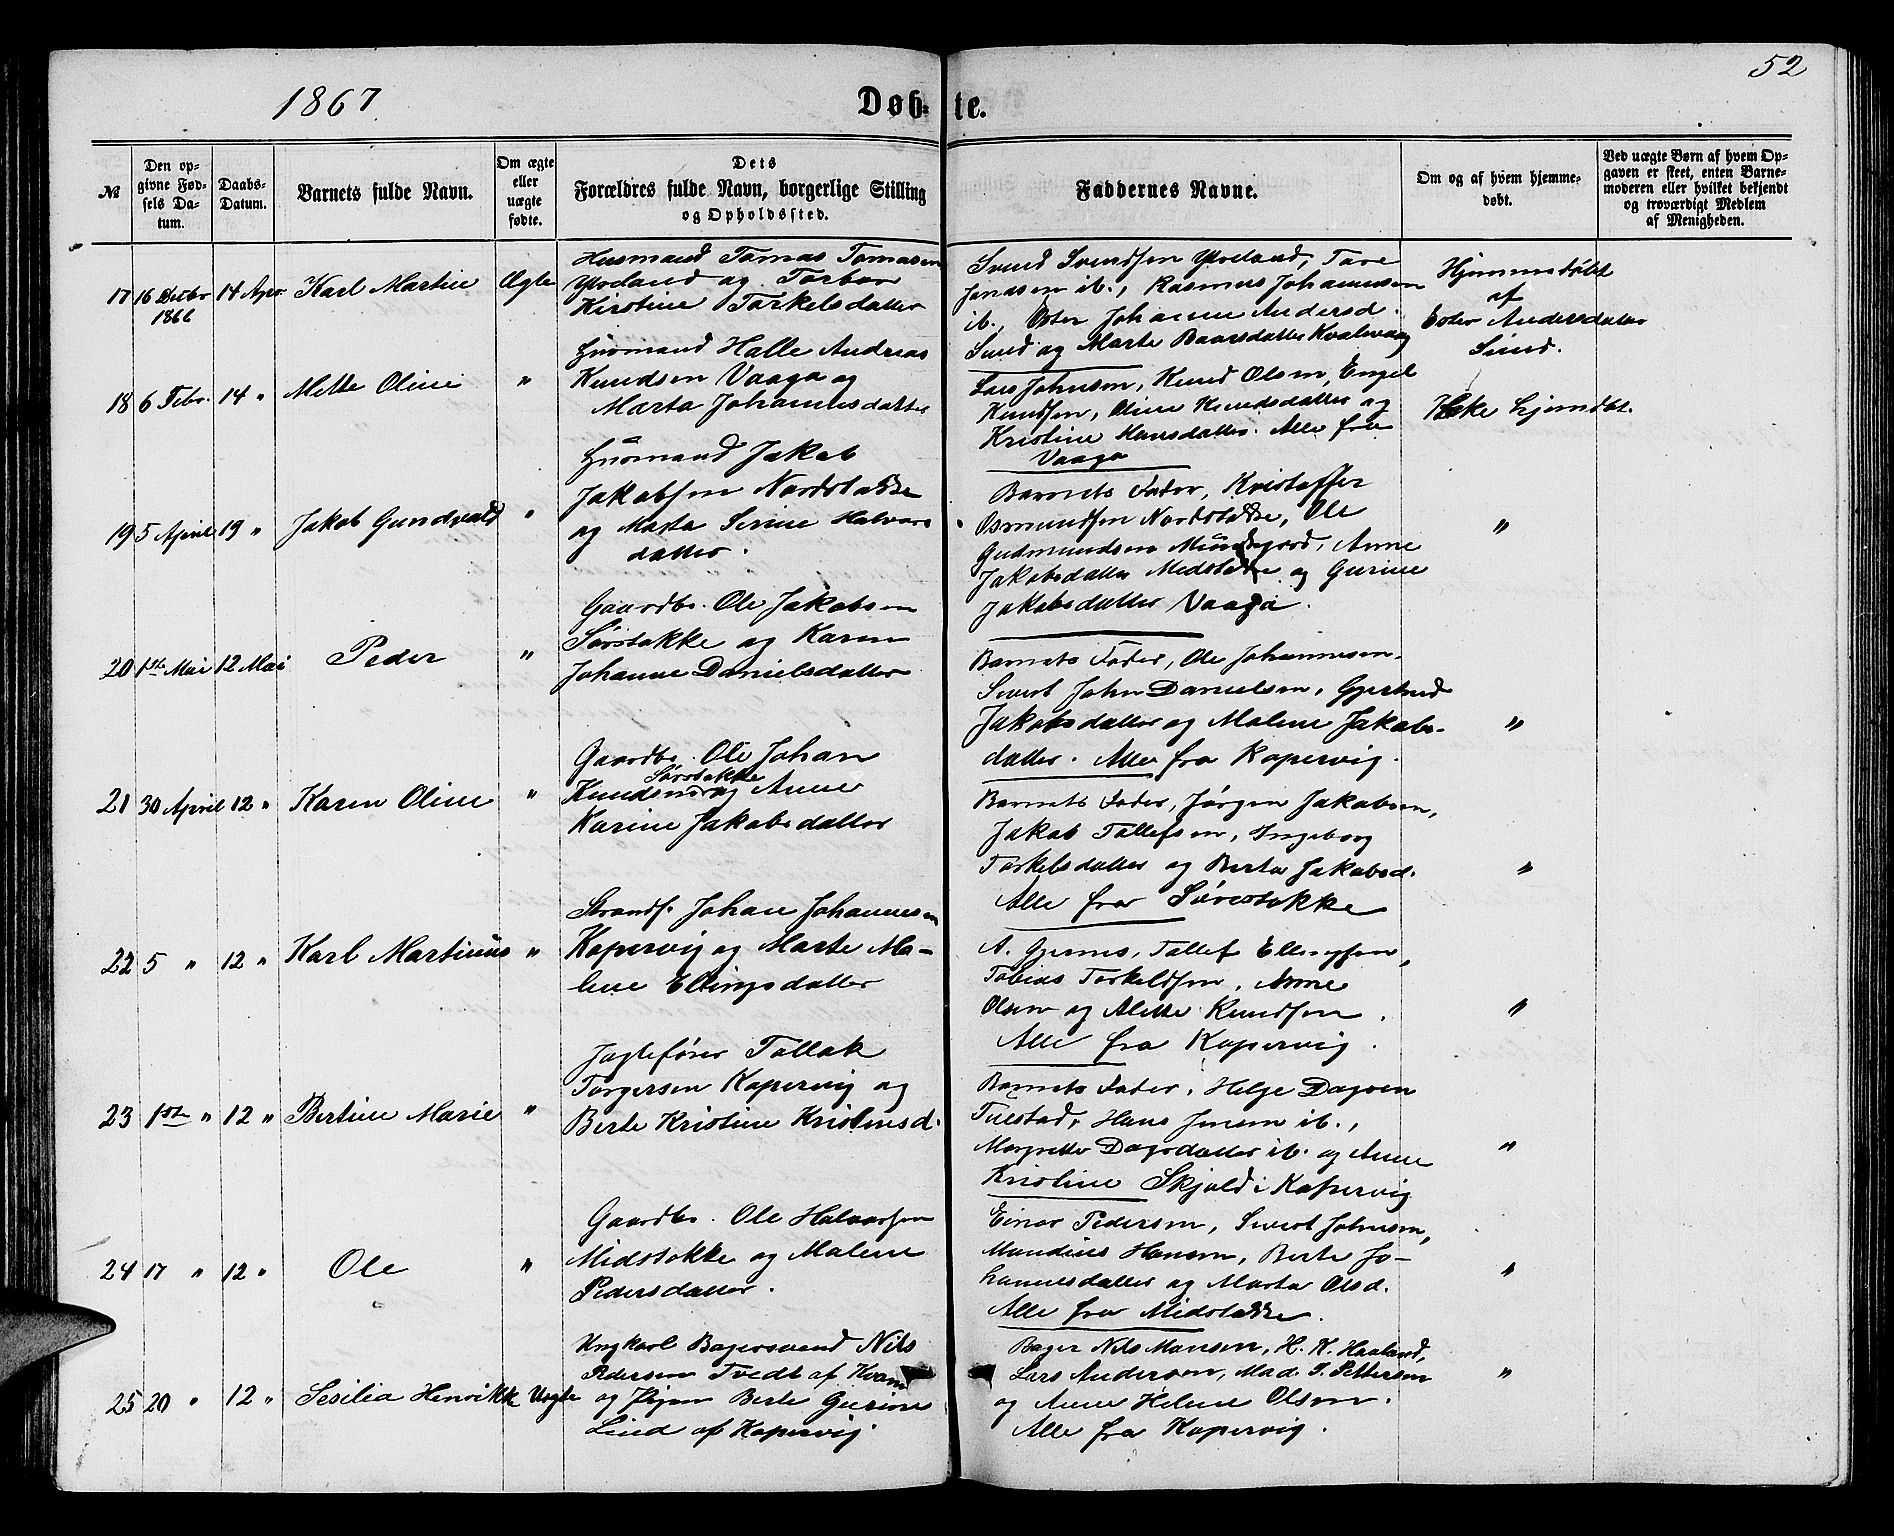 52
1867
Døbte.
№
Den opgivne Fødsels Datum.
Daabs-Datum.
Barnets fulde Navn.
Om ægte eller uægte fødte.
Dets Forældres fulde Navn, borgerlige Stilling og Opholdssted.
Faddernes Navne.
Om og af hvem hjemmedøbt.
Ved uægte Børn af hvem Opgaven er skeet, enten Barnemoderen eller hvilket bekjendt og troværdigt Medlem af Menigheden.
17 16 Decbr 1866 14 Apr Karl Martin Ægte
Husmand Tomas Tomasen
Ytreland og Torbor
Kirstine Torkelsdatter
Svend Svendsen Ytreland, Tore
Jonassen ib., Rasmus Johannesen
ib., Ester Johanne Andersd.
Sund og Marte Baarsdatter Kvalevaag
Hjemmedøbt
af
Ester Andersdatter
Sund.
18 6 Febr. 14 " Mette Oline "
Husmand Halle Andreas
Knudsen Vaaga og
Marta Johannesdatter
Lars Johnsen, Knud Olsen, Engel
Knudsen, Oline Knudsdatter og
Kristine Hansdatter. Alle fra
Vaaga
Ikke hjemdbt.
19 5 April 19 " Jakob Gundvald "
Husmand Jakob
Jakobsen Nordstokke
og Marta Serine Halvors
datter.
Barnets Fader, Kristoffer
Osmundsen Nordstokke, Ole
Gudmundsen Mundegjord, Anne
Jakobsdatter Medstokke og Gurine
Jakobsdatter Vaaga.
"
20 1ste Mai 12 Mai Peder "
Gaardbr. Ole Jakobsen
Sørstokke og Karen
Johanne Danielsdatter
Barnets Fader, Ole Johannesen.
Sivert John Danielsen, Gjertrud
Jakobsdatter og Malene Jakobs-
datter. Alle fra Kopervig.
"
21 30 April 12 " Karen Oline "
Gaardbr. Ole Johan
Sørstokke
Knudsen og Anne
Karine Jakobsdatter
Barnets Fader, Jørgen Jakobsen,
Jakob Tollefsen, Ingeborg
Torkelsdatter og Berta Jakobsd.
Alle fra Sørestokke
"
22 5 " 12 " Karl Martinus "
Strands. Johan Johannesen
Kopervig og Marte Ma-
lene Ellingsdatter
A. Gjernes, Tollef Ellingsen,
Tobias Torkeldsen, Anne
Olsen og Alette Knudsen.
Alle fra Kopervig.
"
23 1ste " 12 " Bertine Marie "
Jagtefører Tollak
Torgersen Kopervig og
Berte Kristine Kristensd.
Barnets Fader, Helge Dagsen
Tuestad, Hans Jensen ib.,
Margrette Dagsdatter ib. og Anne
Kristine Skjold i Kopervig
"
24 17 " 12 " Ole "
Gaardbr. Ole Halvorsen
Midstokke og Malene
Pedersdatter.
Einar Pedersen, Sivert Johnsen,
Mandius Hansen, Berte Jo-
hannesdatter og Marta Olsd.
Alle fra Midstokke.
"
25 20 " 12 " Sesilia Henrikk Uægte
Ungkarl Bagersvend Nils
Pedersen Tvedt af Kvam
og Pigen Berte Gurine
Lund af Kopervig
Bager Nils Monsen, H. K. Haaland,
Lars Andersen, Mad. T. Pettersen
og Anne Helene Olsen.
Alle fra Kopervig.
"